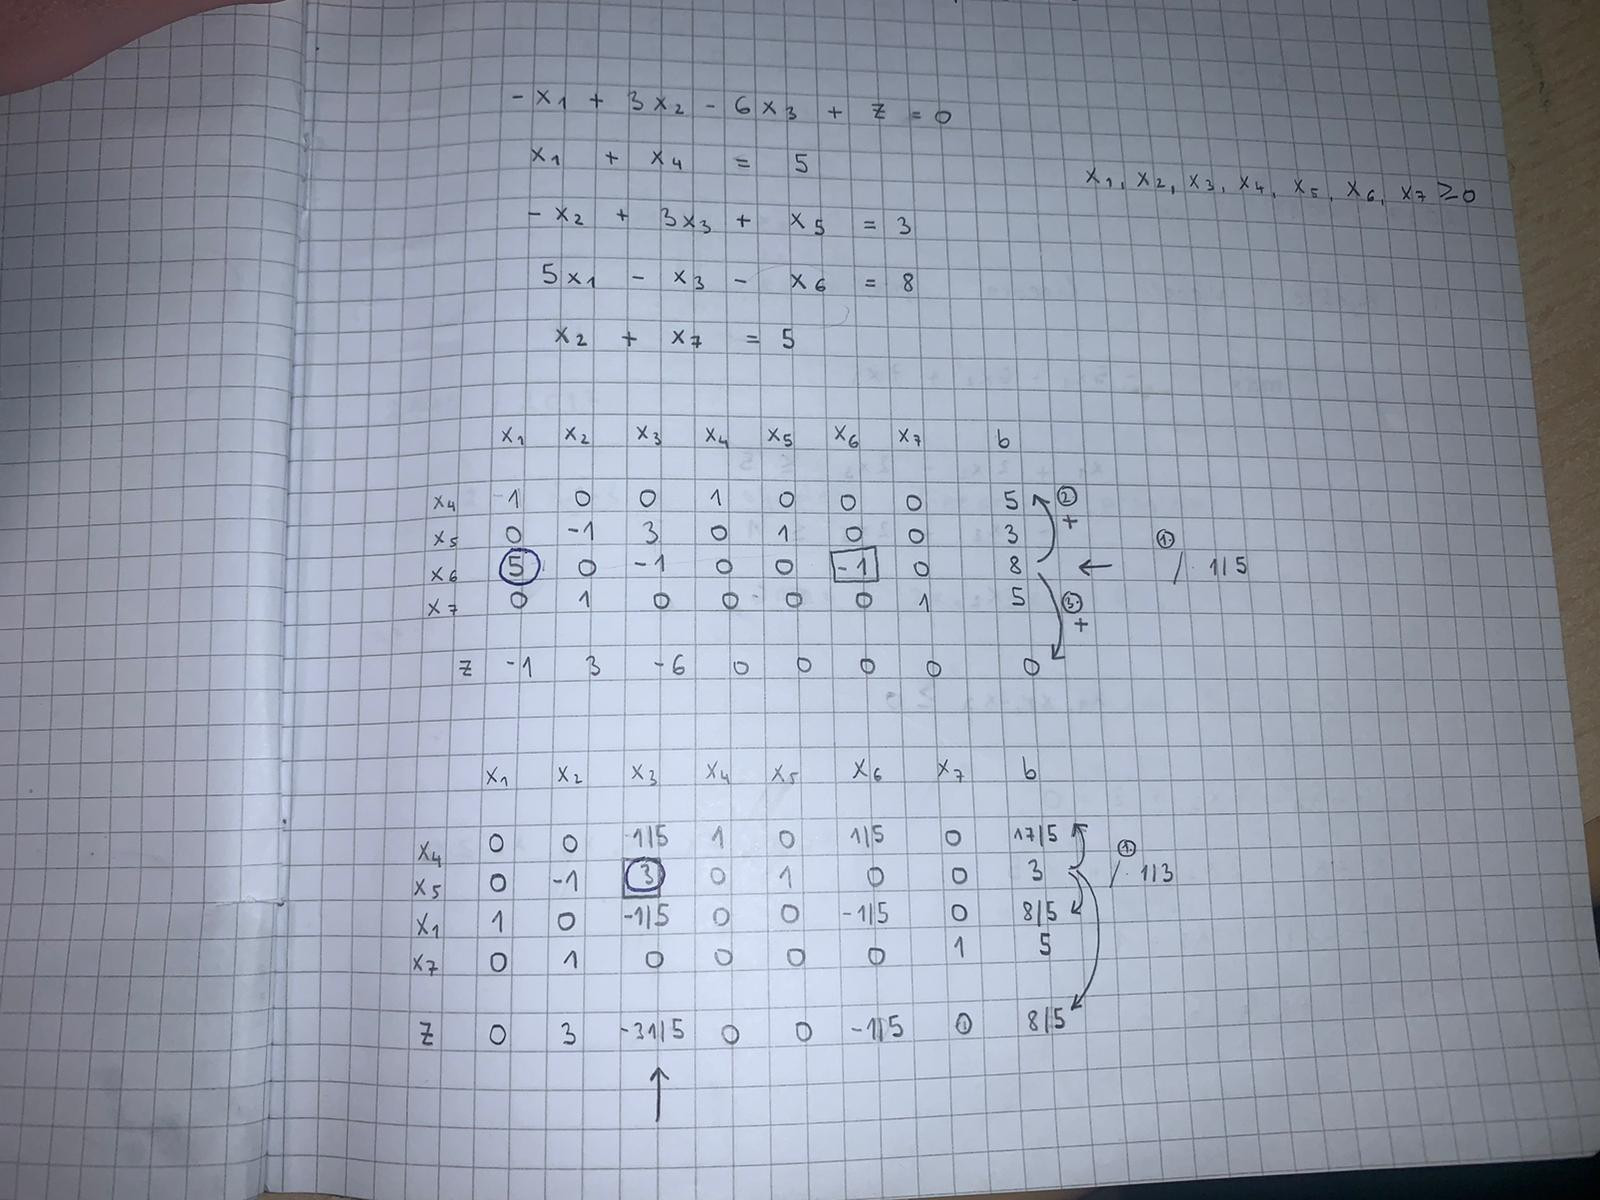 -x1 + 3x2 - 6x3 + z = 0
x1 + x4 = 5
x1, x2, x3, x4, x5, x6, x7 ≥ 0
-x2 + 3x3 + x5 = 3
5x1 - x3 - x6 = 8
x2 + x7 = 5
x1 x2 x3 x4 x5 x6 x7 b
x4 1 0 0 1 0 0 0 5 ② +
x5 0 -1 3 0 1 0 0 3
x6 5 0 -1 0 0 -1 0 8 ← ①. /· 1/5
x7 0 1 0 0 0 0 1 5 ③. +
z -1 3 -6 0 0 0 0 0
x1 x2 x3 x4 x5 x6 x7 b
x4 0 0 1/5 1 0 1/5 0 17/5
x5 0 -1 3 0 1 0 0 3 ①. /· 1/3
x1 1 0 -1/5 0 0 -1/5 0 8/5
x7 0 1 0 0 0 0 1 5
z 0 3 -31/5 0 0 -1/5 0 8/5
↑